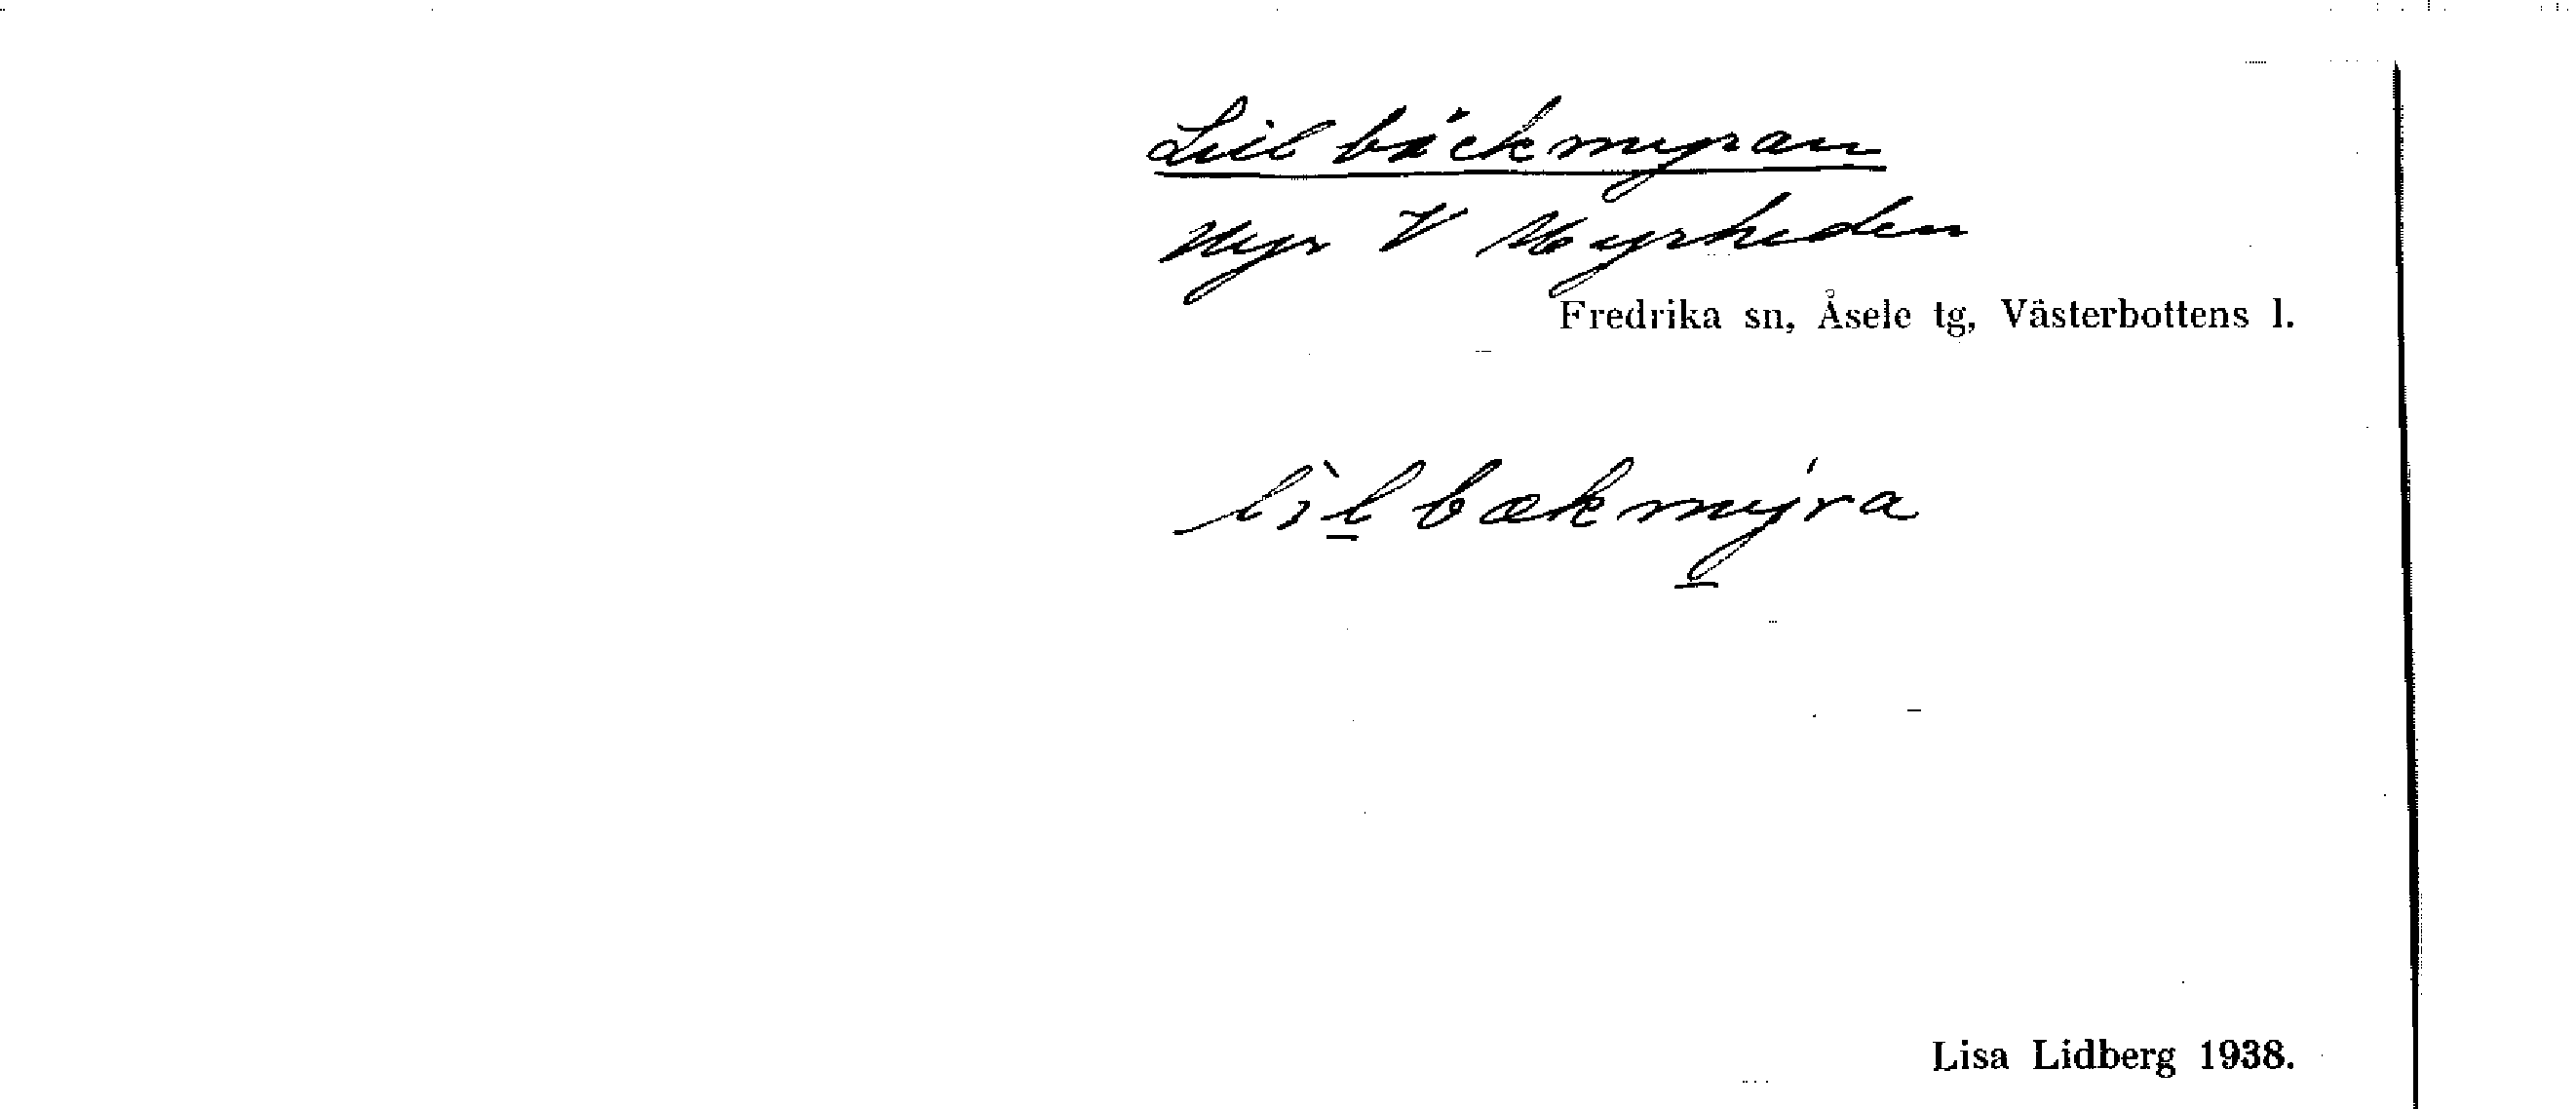 Lillbäckmyran
Myr V Myrheden
Fredrika sn, Åsele tg, Västerbottens l.
lìlbækmy̍ra
Lisa Lidberg 1938.